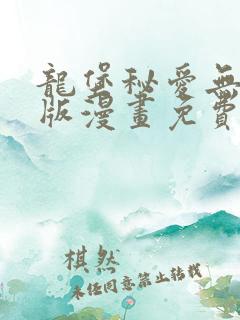 龍堡秘愛無
版漫畫免費
棋然
未任同意禁止转载